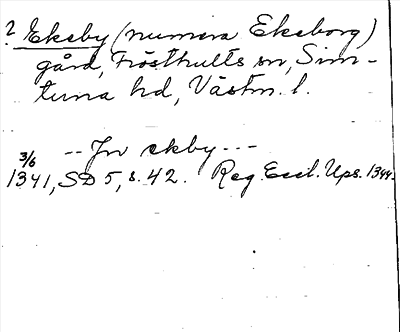 ? Eksby (numera Eksborg)
gård, Frösthults sn, Sim-
tuna hd, Västm. l.
-- Jn ekby ---
3/6
1341, SD 5, s. 42. Reg. Eccl. Ups. 1344.